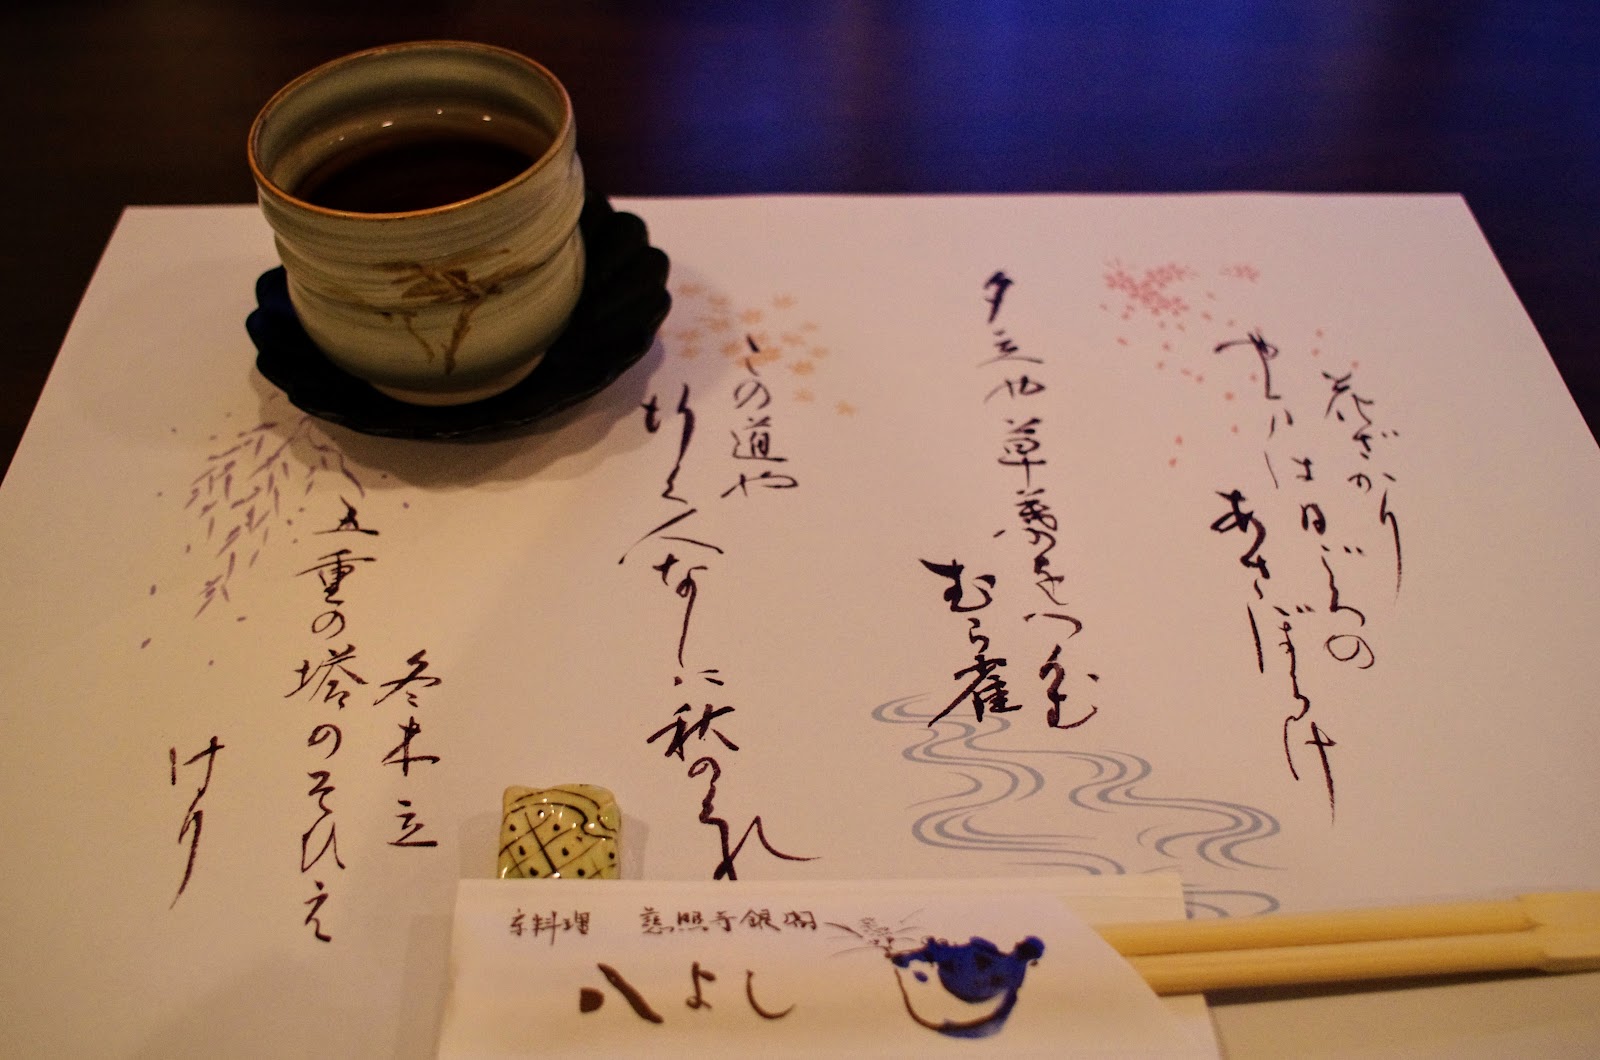 花ざかり
やまは日ごろの
あさぼらけ
夕立や草葉をつかむ
むら雀
この道や
行く人なしに秋のくれ
冬木立
五重の塔のそひえ
けり
京料理 慈照寺銀閣
八よし